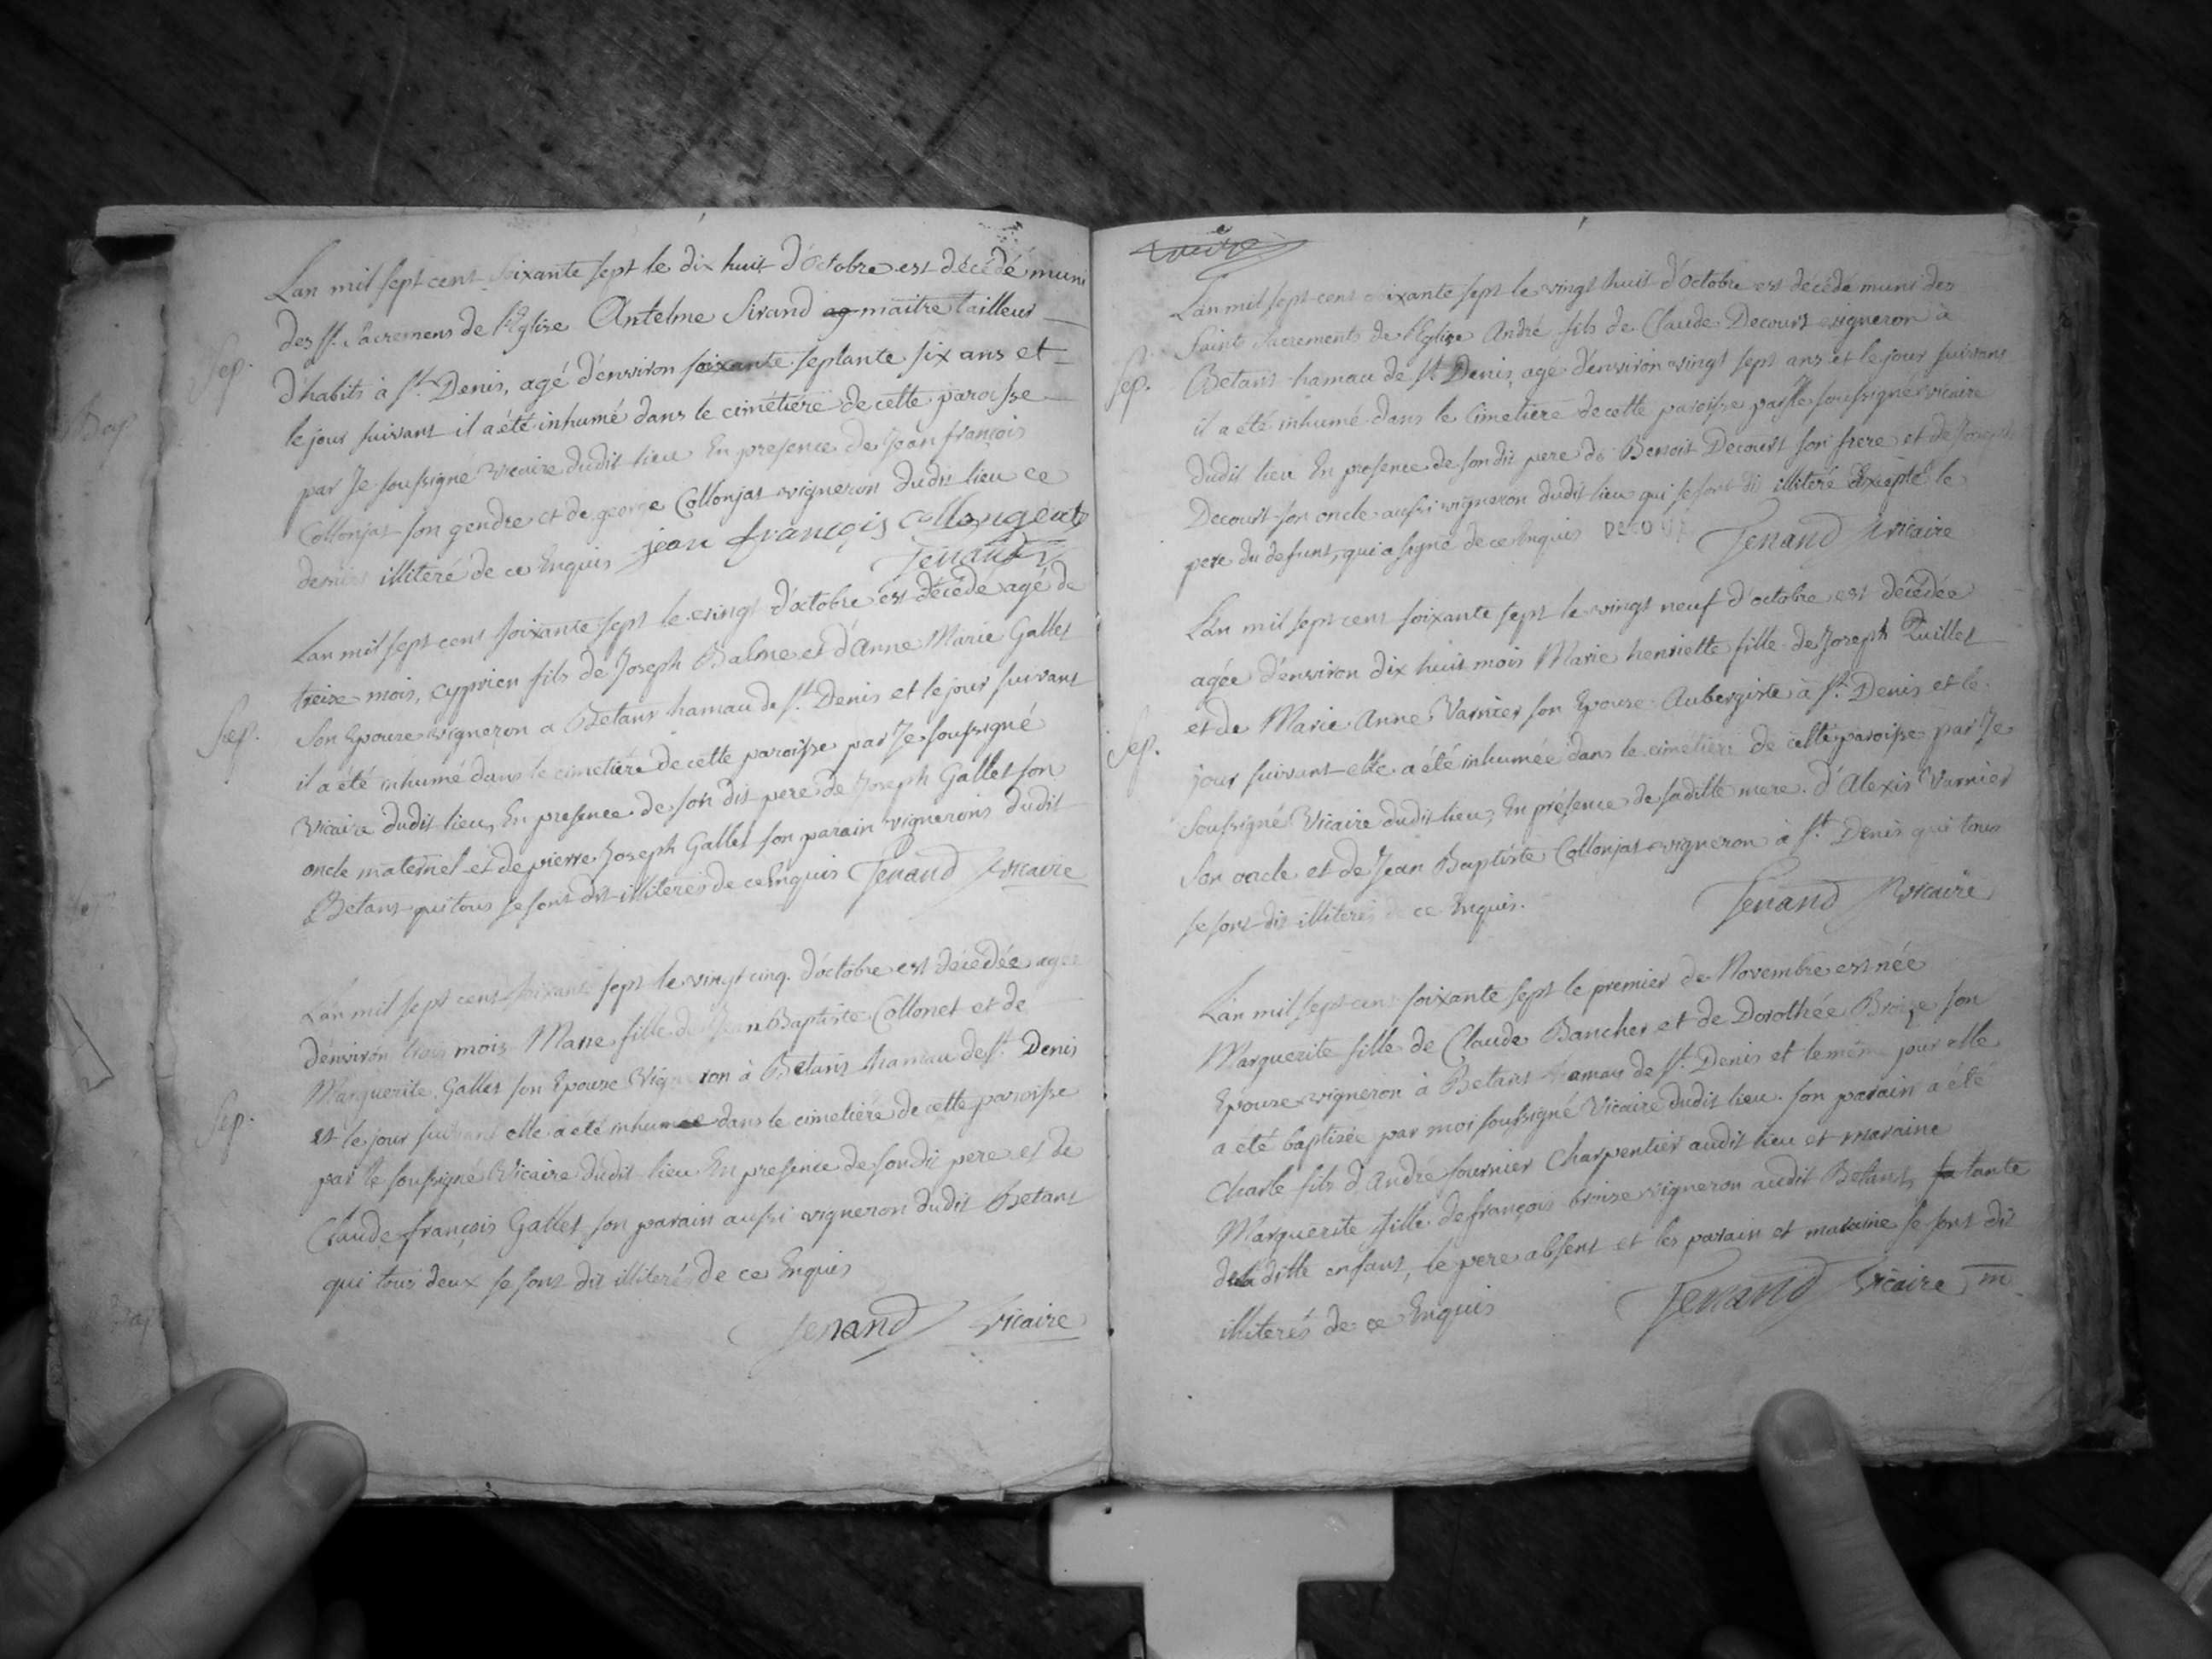 Lan mil sept cent soixante sept le dix huit d'octobre est décédé muni
Sep.
des Sts. Sacremens de l'Eglise Antelme Sirand ag maitre tailleur
d'habits à St. Denis, agé d'environ soixante septante six ans et
le jour suivant il a été inhumé dans le cimetiére de cette paroisse
par Je soussigné vicaire dudit lieu En presence de Jean françois
Collonjat son gendre et de george Collonjat vigneron dudit lieu ce
dernier illiteré de ce Enquis jean françois Collongeat
Tenand
Lan mil sept cent soixante sept le vingt d'octobre est décédé agé de
treize mois, cyprien fils de Joseph Balme et d'Anne Marie Gallet
Sep.
son Epouse vigneron a Betans hamau de St. Denis et le jour suivant
il a été inhumé dans le cimetiére de cette paroisse par Je soussigné
Vicaire dudit lieu, En presence de son dit pere de Joseph Gallet son
oncle maternel et de pierre Joseph Gallet son parain vignerons dudit
Betans qui tous se sont dit illiterés de ce Enquis Tenand vicaire
Lan mil sept cent soixante sept le vingt cinq d'octobre est décédée agée
d'environ trois mois Marie fille de Jean Baptiste Collonet et de
Marguerite Gallet son Epouse Vigneron à Betans hamau de St. Denis
Sep.
et le jour suivant elle a été inhumée dans le cimetiére de cette paroisse
par le soussigné Vicaire dudit lieu En presence de sondit pere et de
Claude françois Gallet son parain aussi vigneron dudit Betans
qui tous deux se sont dit illiterés de ce Enquis
Tenand vicaire
Lan mil sept cent soixante sept le vingt huit d'octobre est décédé muni des
Saints Sacrements de l'Eglise André fils de Claude Decourt vigneron à
Sep.
Betans hamau de St. Denis, agé d'environ vingt sept ans et le jour suivant
il a été inhumé dans le Cimetiére de cette paroisse par Je soussigné vicaire
dudit lieu En presence de son dit pere de Benoit Decourt son frere et de Joseph
Decourt son oncle aussi vigneron dudit lieu qui se sont dit illiteré Excepté le
pere du defunt, qui a signé de ce Enquis Tenand vicaire
Lan mil sept cent soixante sept le vingt neuf d'octobre est décédée
agée d'environ dix huit mois Marie henriette fille de Joseph
et de Marie Anne Varnier son Epouse Aubergiste à St. Denis et le
Sep.
jour suivant elle a été inhumée dans le cimetiére de cette paroisse par Je
soussigné Vicaire dudit lieu, En présence de saditte mere. d'Alexis Varnier
son oncle et de Jean Baptiste Collonjat vigneron à St. Denis qui tous
se sont dit illiterés de ce Enquis.
Tenand vicaire
Lan mil sept cent soixante sept le premier de Novembre est née
Marguerite fille de Claude Bancher et de Dorothée Broize son
Epouse vigneron à Betans hamau de St. Denis et le même jour elle
a été baptizée par moi soussigné Vicaire dudit lieu. son parain a été
Charle fils d'André fournier Charpentier audit lieu et maraine
Marguerite fille de françois broize vigneron audit Betans sa tante
de la ditte enfant, le pere absent et les parain et maraine se sont dit
illiterés de ce Enquis
Tenand vicaire